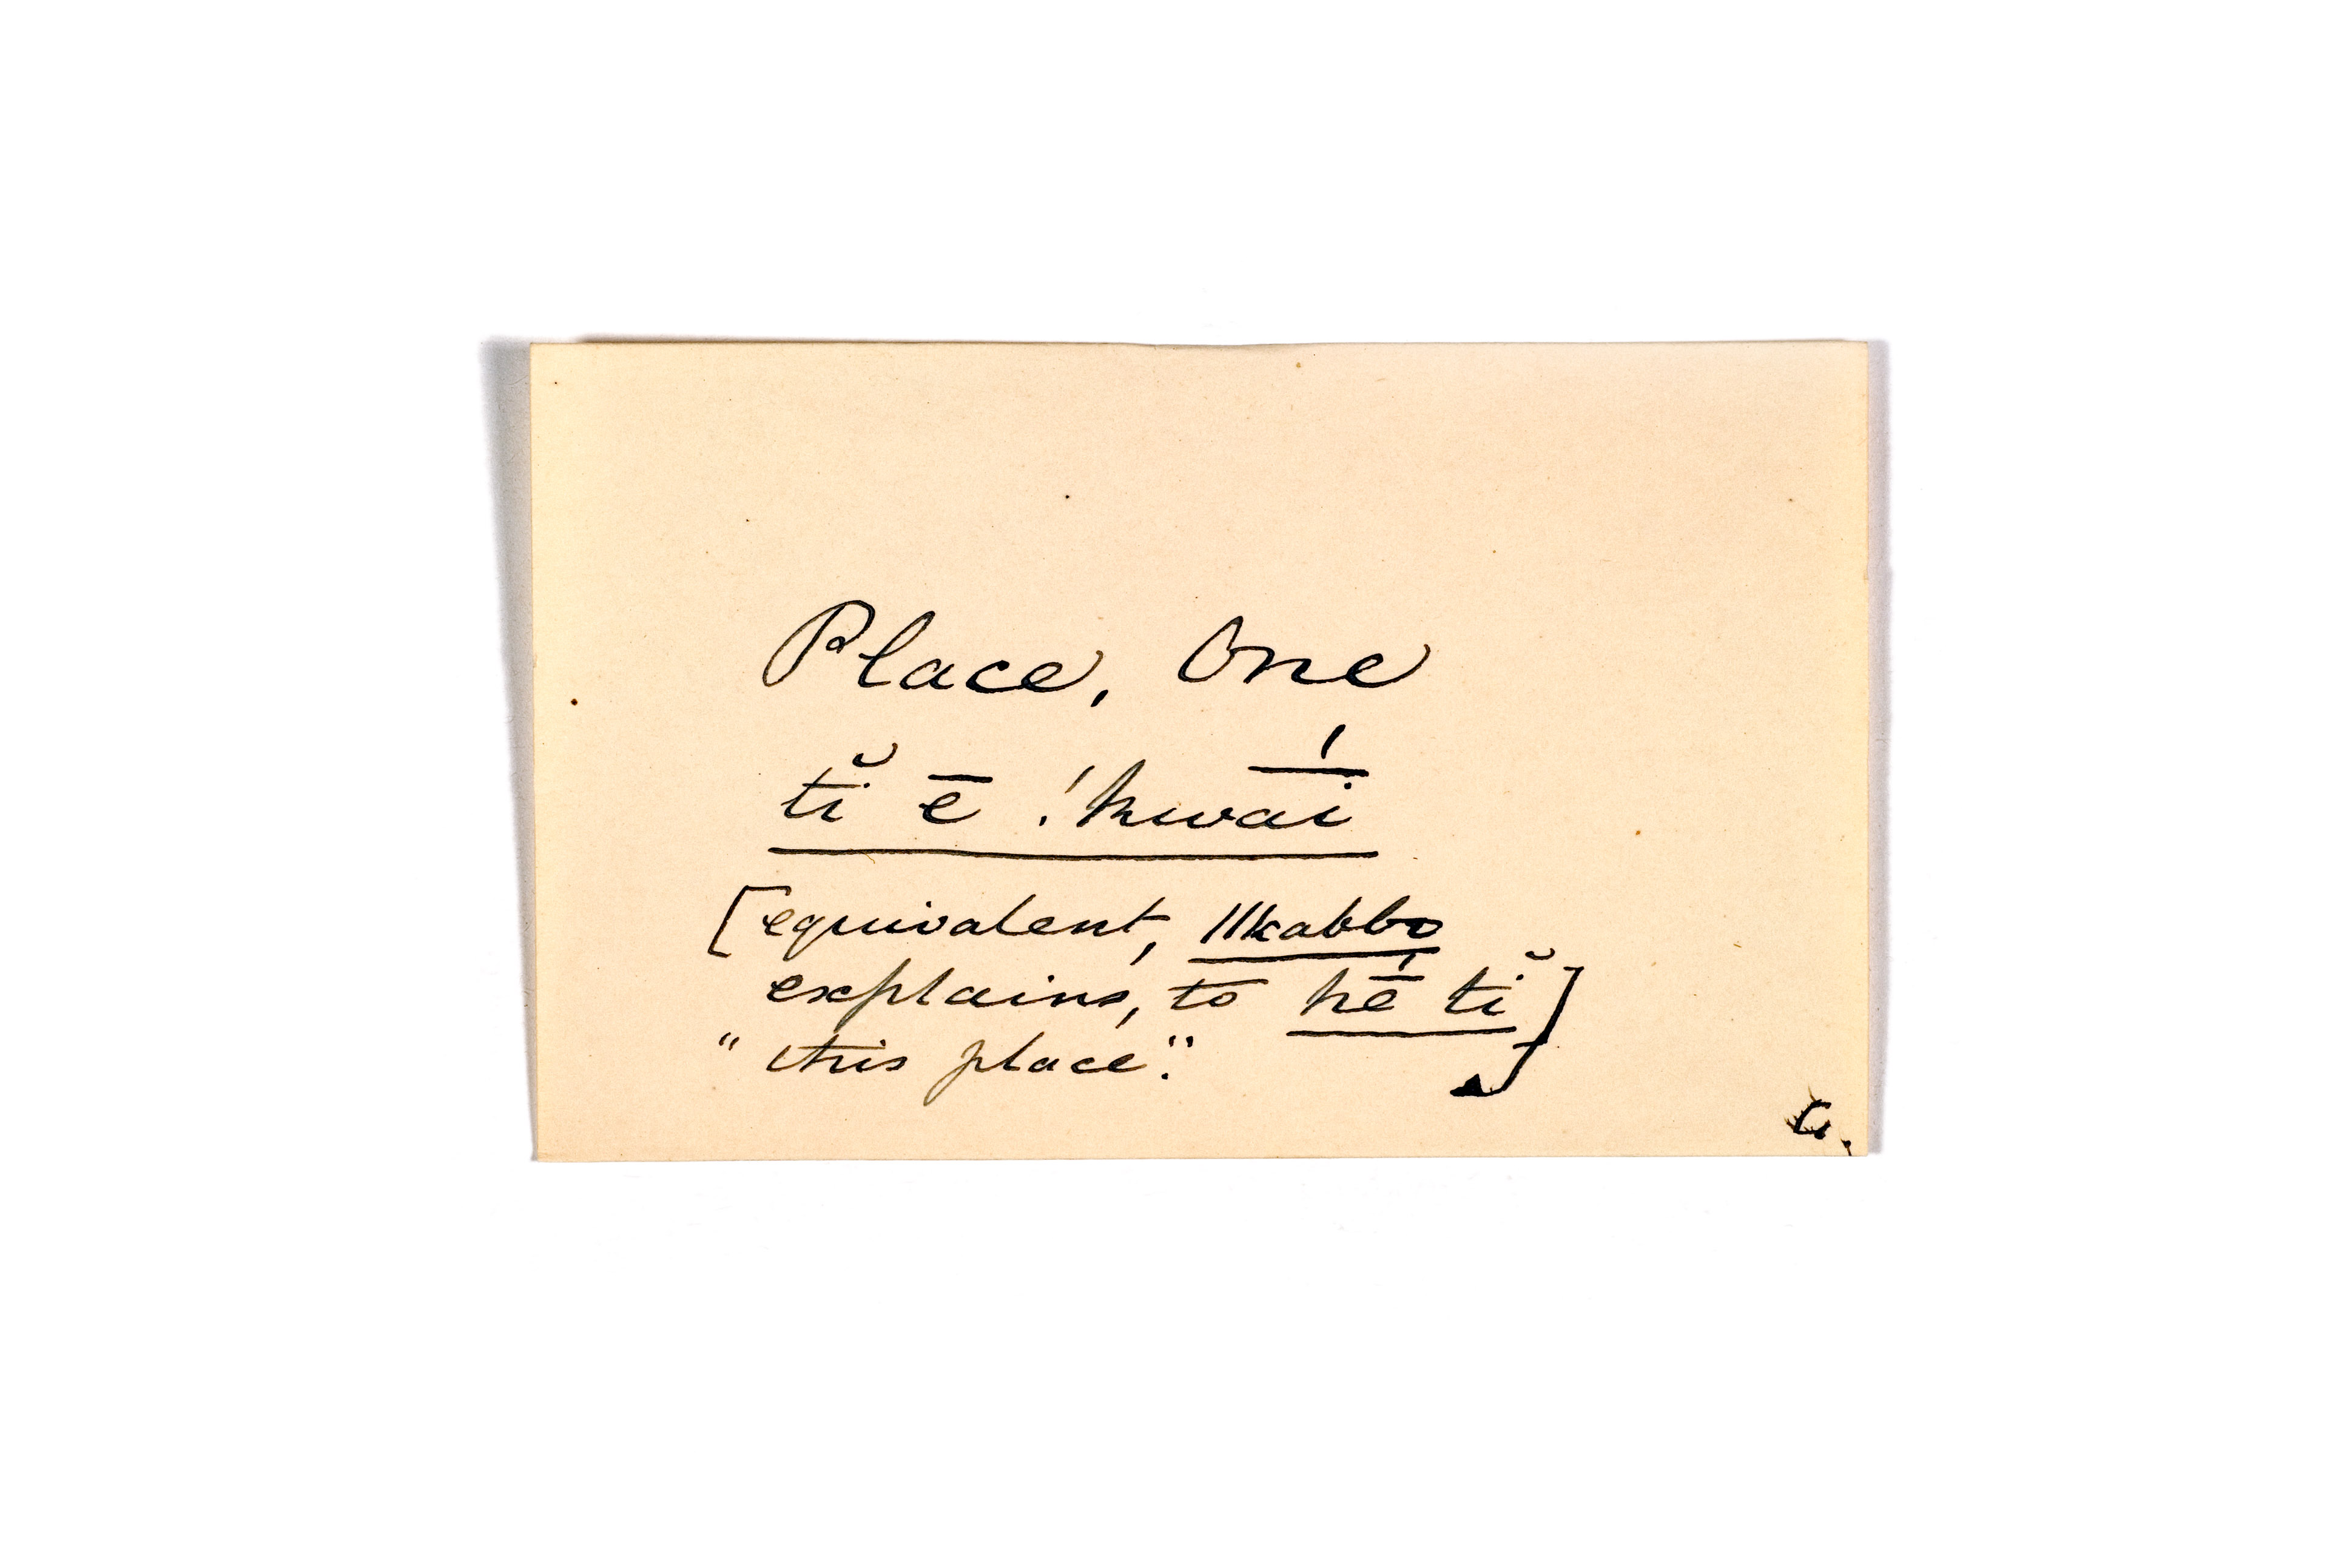 Place, One
tĭ ē !kwā́i
[equivalent, ||kabbo
explains, to hḗ tĭ]
"this place".